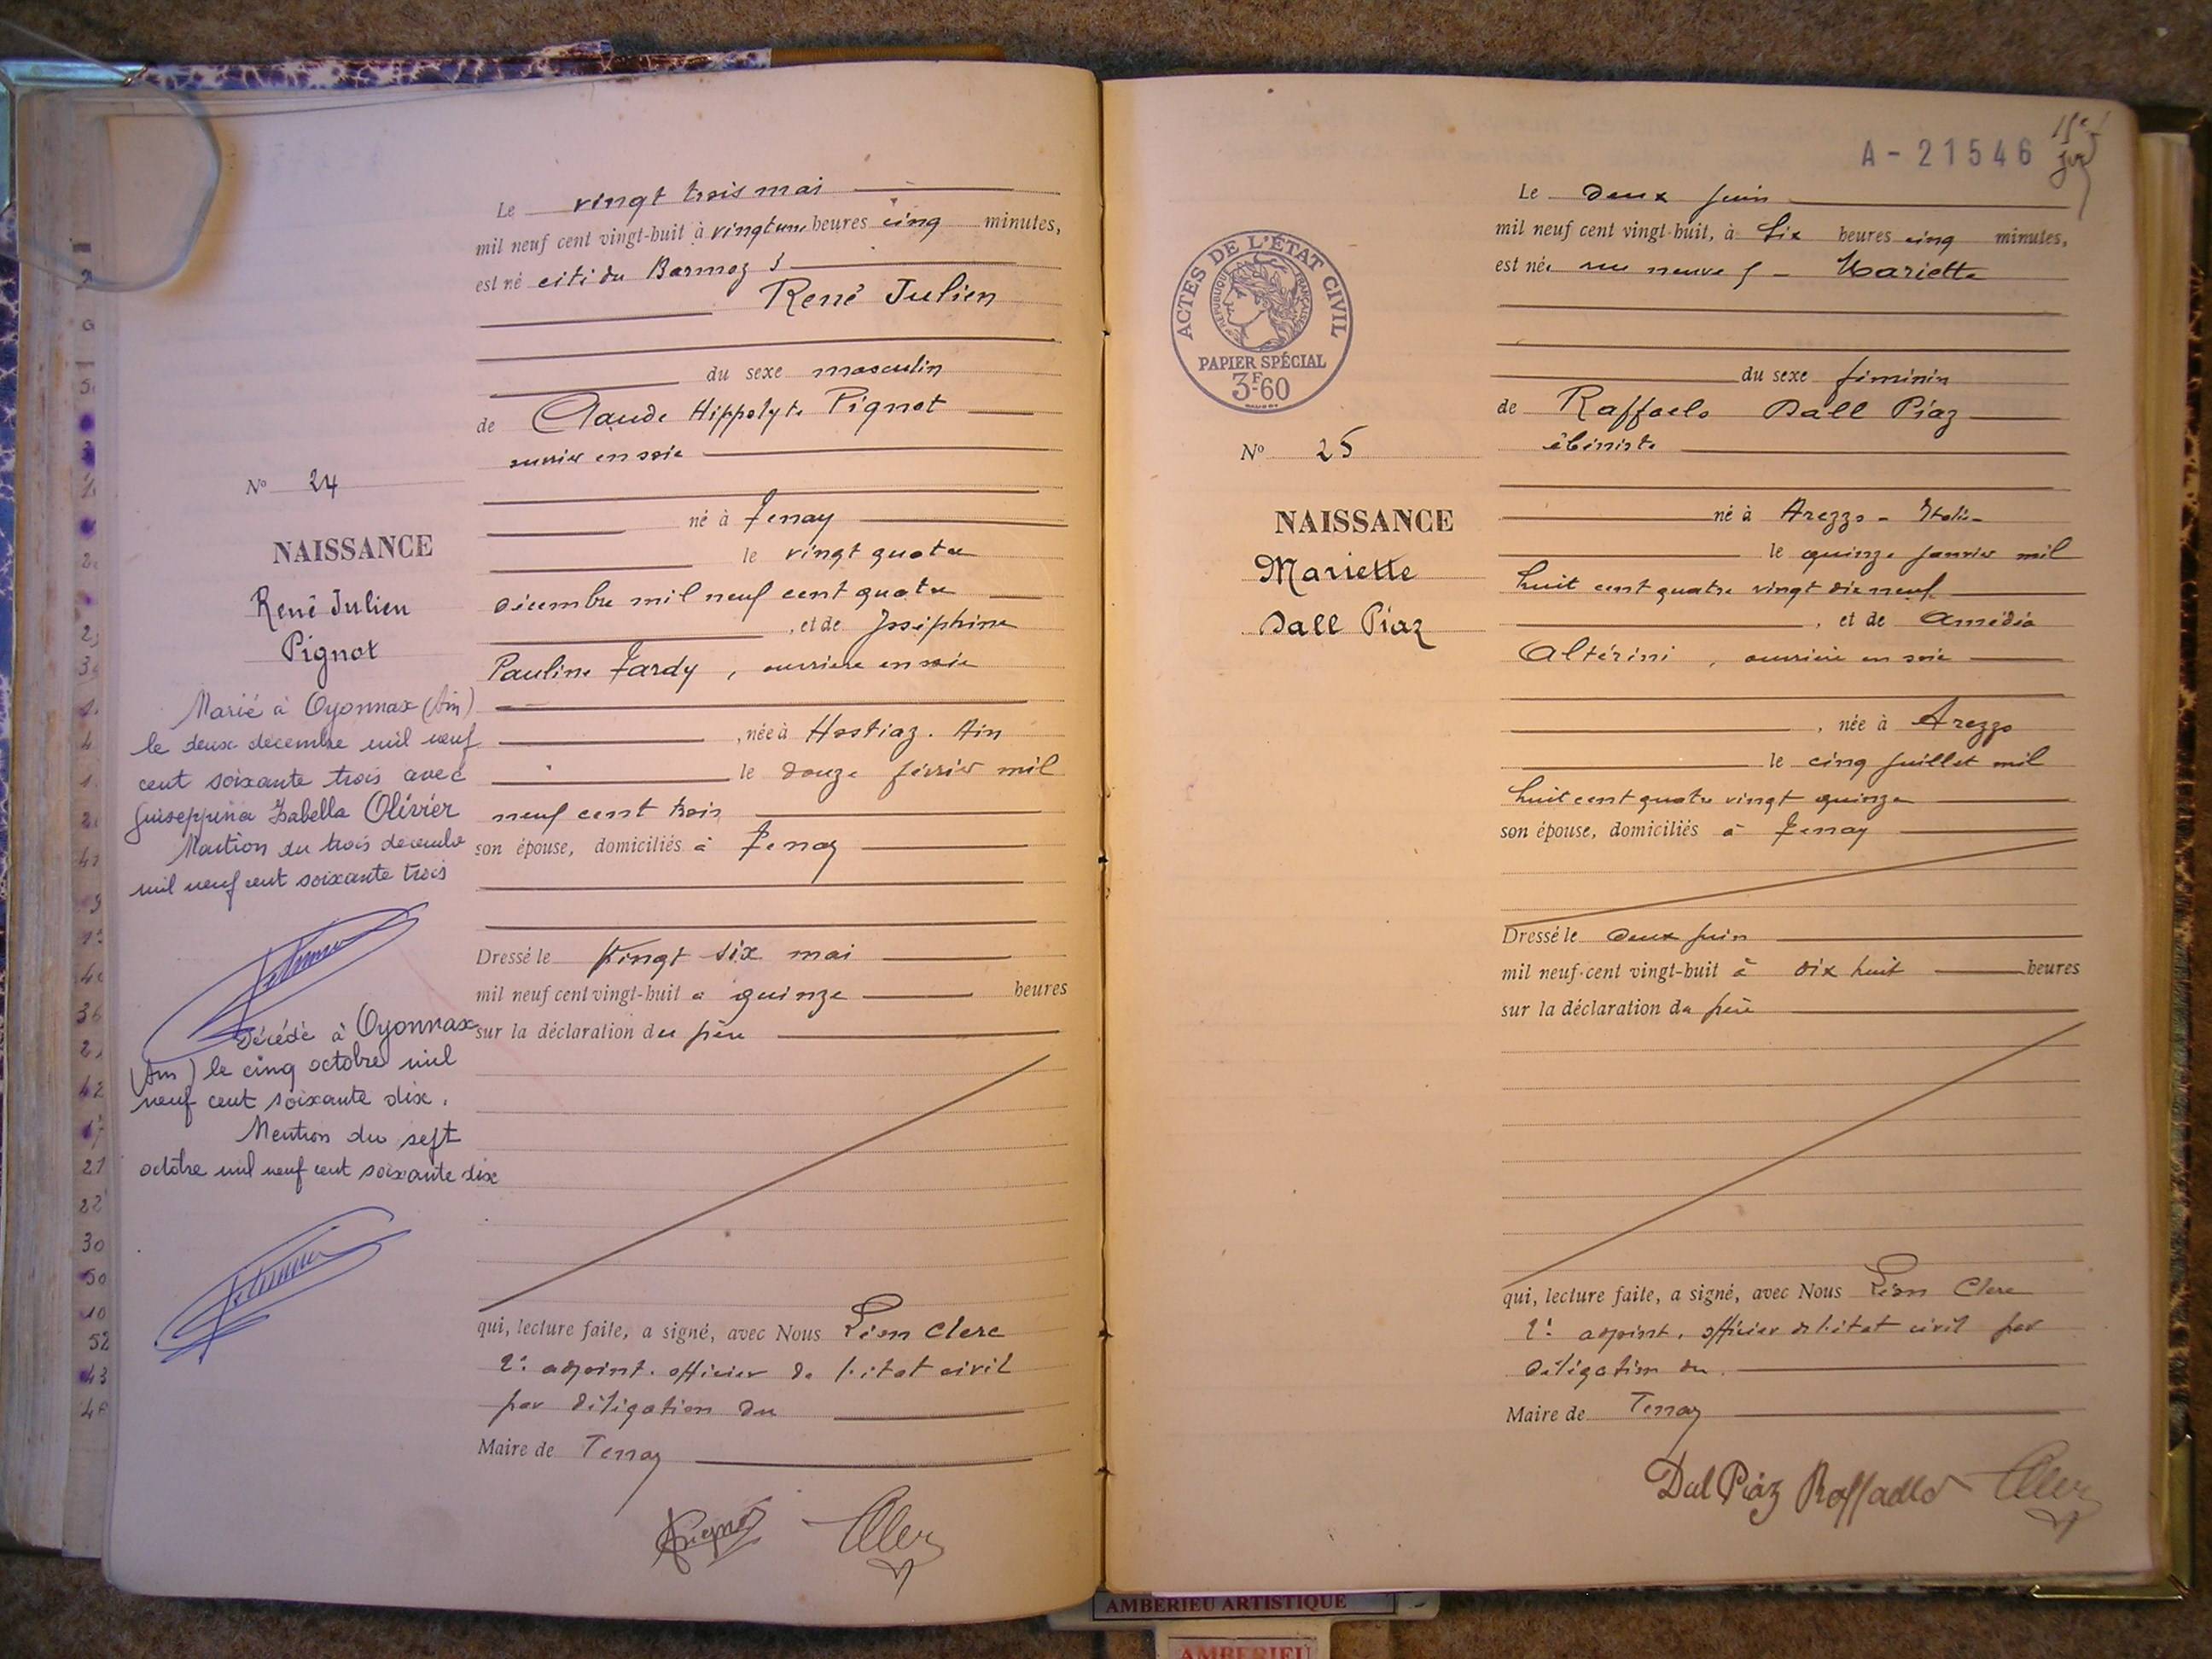 Le vingt trois mai
mil neuf cent vingt-huit à vingt une heures cinq minutes,
est né cité du Barmoz
René Julien
du sexe masculin
de Claude Hippolyte Pignot
ouvrier en soie
né à Tenay
le vingt quatre
décembre mil neuf cent quatre
, et de Joséphine
Pauline Tardy, ouvrière en soie
, née à Hostiaz. Ain
le douze février mil
neuf cent trois
son épouse, domiciliés à Tenay
Dressé le Vingt six mai
mil neuf cent vingt-huit à quinze heures
sur la déclaration du père
qui, lecture faite, a signé, avec Nous Léon Clerc
2e adjoint. officier de l'état civil
par délégation du
Maire de Tenay
Pignot Clerc
No 24
NAISSANCE
René Julien
Pignot
Marié à Oyonnax (Ain)
le deux decembre mil neuf
cent soixante trois avec
Guiseppina Isabella Olivier
Mention du trois decembre
mil neuf cent soixante trois
Décédé à Oyonnax
(Ain) le cinq octobre mil
neuf cent soixante dix.
Mention du sept
octobre mil neuf cent soixante dix
A-21546
ACTES DE L'ÉTAT CIVIL
RÉPUBLIQUE FRANÇAISE
PAPIER SPÉCIAL
3F60
No 25
NAISSANCE
Mariette
Dall Piaz
Le deux juin
mil neuf cent vingt-huit, à six heures cinq minutes,
est née rue neuve 5 - Mariette
du sexe féminin
de Raffaelo Dall Piaz
ébéniste
né à Arezzo - Italie
le quinze janvier mil
huit cent quatre vingt dix neuf
, et de Amédéa
Altérini, ouvrière en soie
, née à Arezzo
le cinq juillet mil
huit cent quatre vingt quinze
son épouse, domiciliés à Tenay
Dressé le deux juin
mil neuf-cent vingt-huit à dix huit heures
sur la déclaration du père
qui, lecture faite, a signé, avec Nous Léon Clerc
2e adjoint, officier de l'état civil par
délégation du
Maire de Tenay
Dal Piaz Raffaello Clerc
AMBERIEU ARTISTIQUE
AMBERIEU